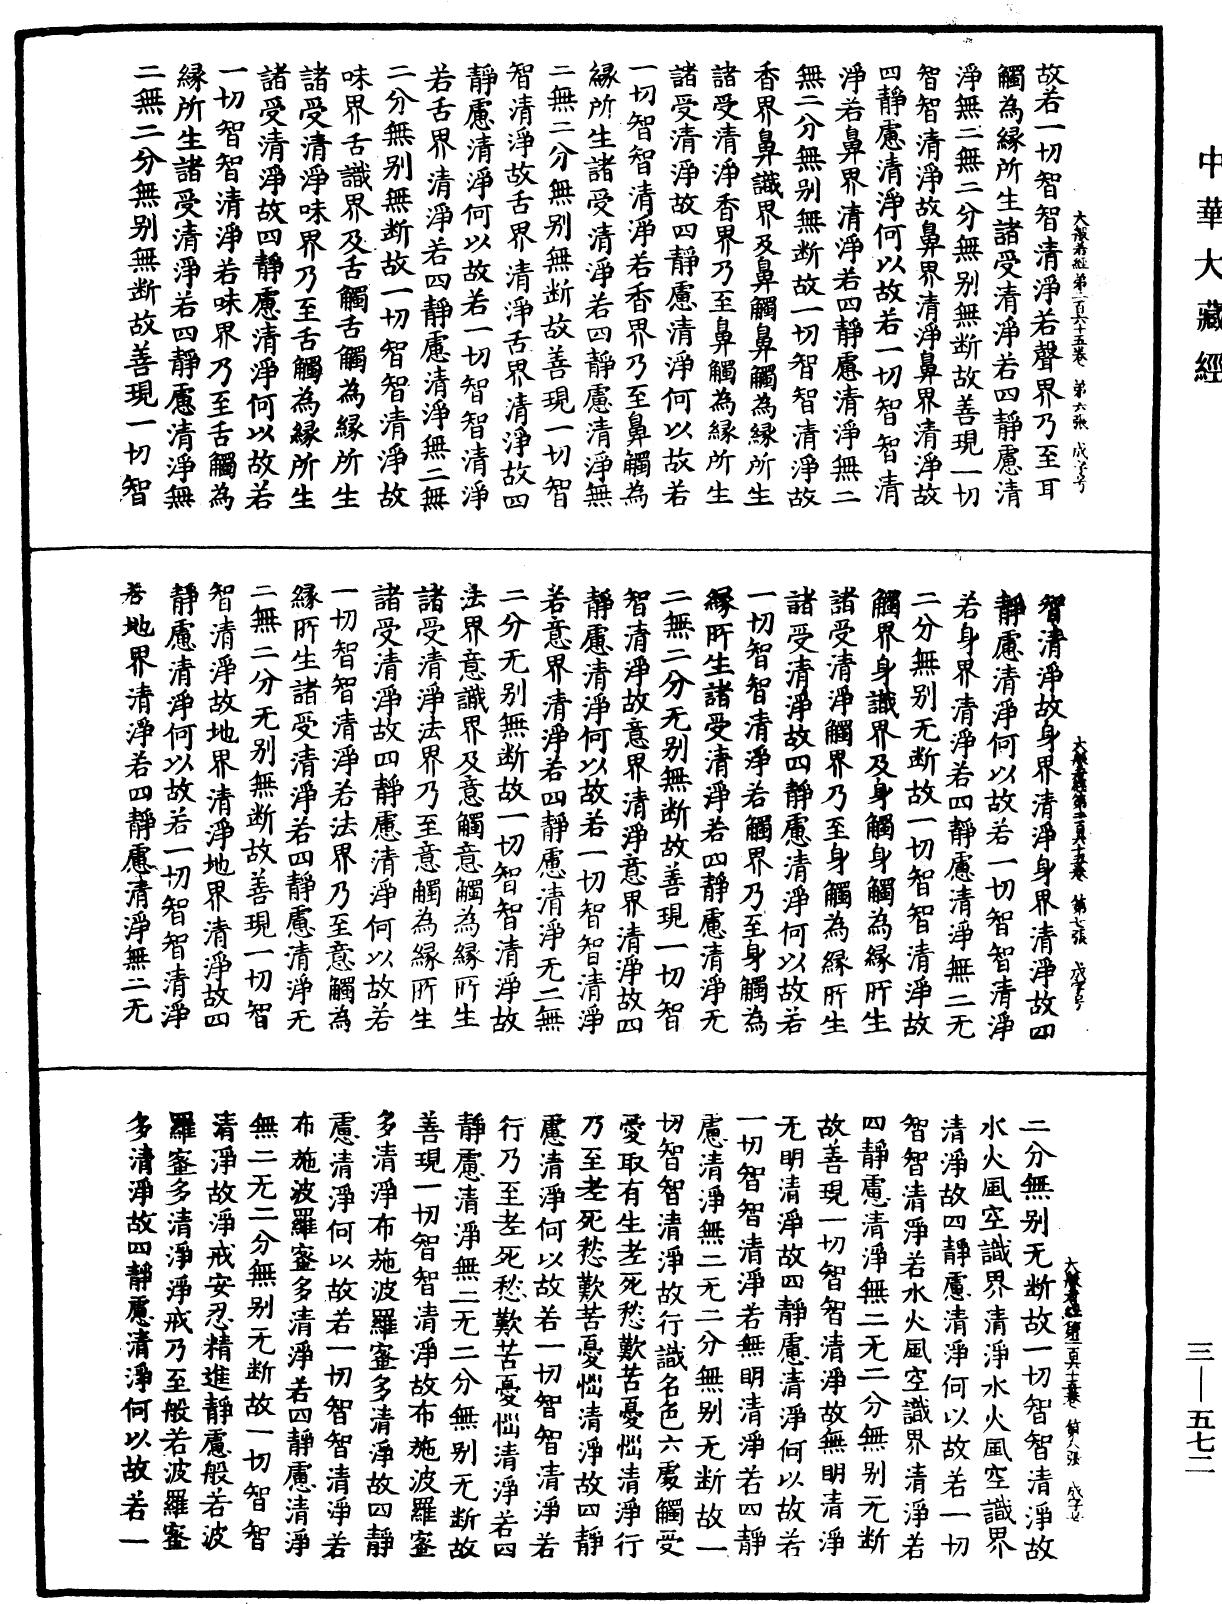 中華大藏經
故若一切智智清淨若聲界乃至耳
觸為緣所生諸受清淨若四靜慮清
淨無二無二分無別無斷故善現一切
智智清淨故鼻界清淨鼻界清淨故
四靜慮清淨何以故若一切智智清
淨若鼻界清淨若四靜慮清淨無二
無二分無別無斷故一切智智清淨故
香界鼻識界及鼻觸鼻觸為緣所生
諸受清淨香界乃至鼻觸為緣所生
諸受清淨故四靜慮清淨何以故若
一切智智清淨若香界乃至鼻觸為
緣所生諸受清淨若四靜慮清淨無
二無二分無別無斷故善現一切智
智清淨故舌界清淨舌界清淨故四
靜慮清淨何以故若一切智智清淨
若舌界清淨若四靜慮清淨無二無
二分無別無斷故一切智智清淨故
味界舌識界及舌觸舌觸為緣所生
諸受清淨味界乃至舌觸為緣所生
諸受清淨故四靜慮清淨何以故若
一切智智清淨若味界乃至舌觸為
緣所生諸受清淨若四靜慮清淨無
二無二分無別無斷故善現一切智
大般若經第二百六十五卷 第六張 成字号
智清淨故身界清淨身界清淨故四
靜慮清淨何以故若一切智智清淨
若身界清淨若四靜慮清淨無二无
二分無別无斷故一切智智清淨故
觸界身識界及身觸身觸為緣所生
諸受清淨觸界乃至身觸為緣所生
諸受清淨故四靜慮清淨何以故若
一切智智清淨若觸界乃至身觸為
緣所生諸受清淨若四靜慮清淨无
二無二分无別無斷故善現一切智
智清淨故意界清淨意界清淨故四
靜慮清淨何以故若一切智智清淨
若意界清淨若四靜慮清淨无二無
二分无別無斷故一切智智清淨故
法界意識界及意觸意觸為緣所生
諸受清淨法界乃至意觸為緣所生
諸受清淨故四靜慮清淨何以故若
一切智智清淨若法界乃至意觸為
緣所生諸受清淨若四靜慮清淨无
二無二分无別無斷故善現一切智
智清淨故地界清淨地界清淨故四
靜慮清淨何以故若一切智智清淨
若地界清淨若四靜慮清淨無二无
大般若經第二百六十五卷 第七張 成字号
二分無別无斷故一切智智清淨故
水火風空識界清淨水火風空識界
清淨故四靜慮清淨何以故若一切
智智清淨若水火風空識界清淨若
四靜慮清淨無二无二分無別无斷
故善現一切智智清淨故無明清淨
无明清淨故四靜慮清淨何以故若
一切智智清淨若無明清淨若四靜
慮清淨無二无二分無別无斷故一
切智智清淨故行識名色六處觸受
愛取有生老死愁歎苦憂惱清淨行
乃至老死愁歎苦憂惱清淨故四靜
慮清淨何以故若一切智智清淨若
行乃至老死愁歎苦憂惱清淨若四
靜慮清淨無二无二分無別无斷故
善現一切智智清淨故布施波羅蜜
多清淨布施波羅蜜多清淨故四靜
慮清淨何以故若一切智智清淨若
布施波羅蜜多清淨若四靜慮清淨
無二无二分無別无斷故一切智智
清淨故淨戒安忍精進靜慮般若波
羅蜜多清淨淨戒乃至般若波羅蜜
多清淨故四靜慮清淨何以故若一
大般若經第二百六十五卷 第八張 成字号
三—五七二